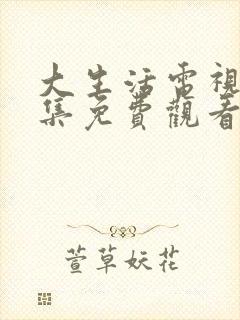 大生活電視
集免費觀看
萱草妖花